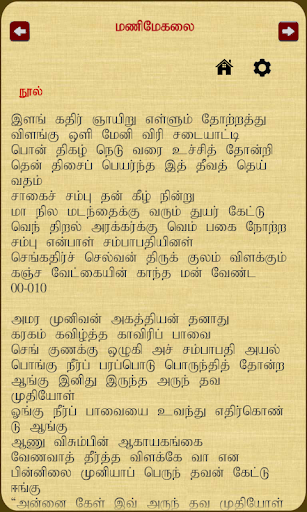 மணிமேகலை
நூல்
இளங் கதிர் ஞாயிறு எள்ளும் தோற்றத்து
விளங்கு ஒளி மேனி விரி சடையாட்டி
பொன் திகழ் நெடு வரை உச்சித் தோன்றி
தென் திசைப் பெயர்ந்த இத் தீவத் தெய்
வதம்
சாகைச் சம்பு தன் கீழ் நின்று
மா நில மடந்தைக்கு வரும் துயர் கேட்டு
வெந் திறல் அரக்கர்க்கு வெம் பகை நோற்ற
சம்பு என்பாள் சம்பாபதியினள்
செங்கதிர்ச் செல்வன் திருக் குலம் விளக்கும்
கஞ்ச வேட்கையின் காந்த மன் வேண்ட
00-010
அமர முனிவன் அகத்தியன் தனாது
கரகம் கவிழ்த்த காவிரிப் பாவை
செங் குணக்கு ஒழுகி அச் சம்பாபதி அயல்
பொங்கு நீர்ப் பரப்பொடு பொருந்தித் தோன்ற
ஆங்கு இனிது இருந்த அருந் தவ
முதியோள்
ஓங்கு நீர்ப் பாவையை உவந்து எதிர்கொண்
டு ஆங்கு
ஆணு விசும்பின் ஆகாயகங்கை
வேணவாத் தீர்த்த விளக்கே வா என
பின்னிலை முனியாப் பெருந் தவன் கேட்டு
ஈங்கு
“அன்னை கேள் இவ் அருந் தவ முதியோள்